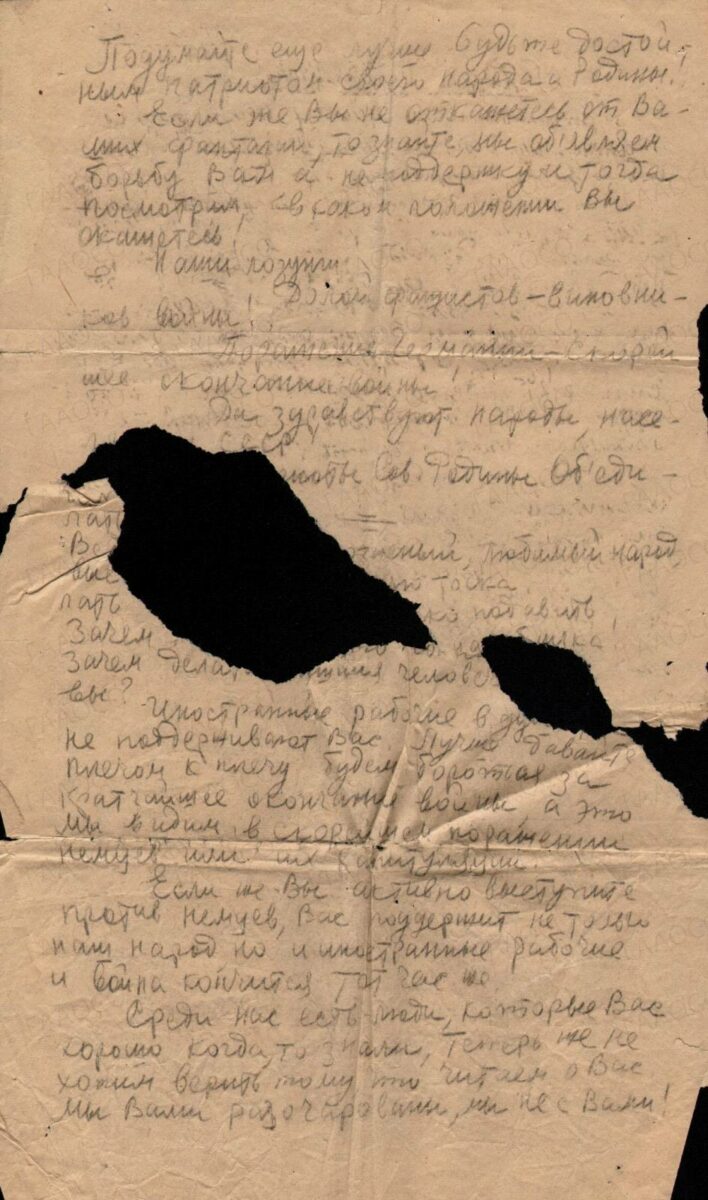 Подумайте еще лучше будьте достой-
ным патриотом своего народа и Родины!
Если же Вы не откажетесь от Ва-
ших фантазий, то знайте, мы об'являем
борьбу Вам а не поддержку и тогда
посмотрим, в каком положении Вы
окажетесь!
Наши лозунги:
Долой фашистов – виновни-
ков войны!
Поражение Германии – скорей
шее окончание войны!
Да здравствуют народы насе-
СССР!
Сов. Родины Об'еди-
любимый народ,
тоска,
лать
Зачем
Зачем
вы?
Иностранные рабочие в
не поддерживают Вас. Лучше давайте
плечом к плечу будем бороться за
кратчайшее окончание войны а это
мы видим в скорейшем поражении
немцев или их капитуляции.
Если же Вы активно выступите
против немцев, Вас поддержит не только
наш народ но и иностранные рабочие
и война кончится тот час же.
Среди нас есть люди, которые Вас
хорошо когда, то знали, теперь же не
хотим верить тому что читаем о Вас
мы Вами разочарованы, мы не с Вами!